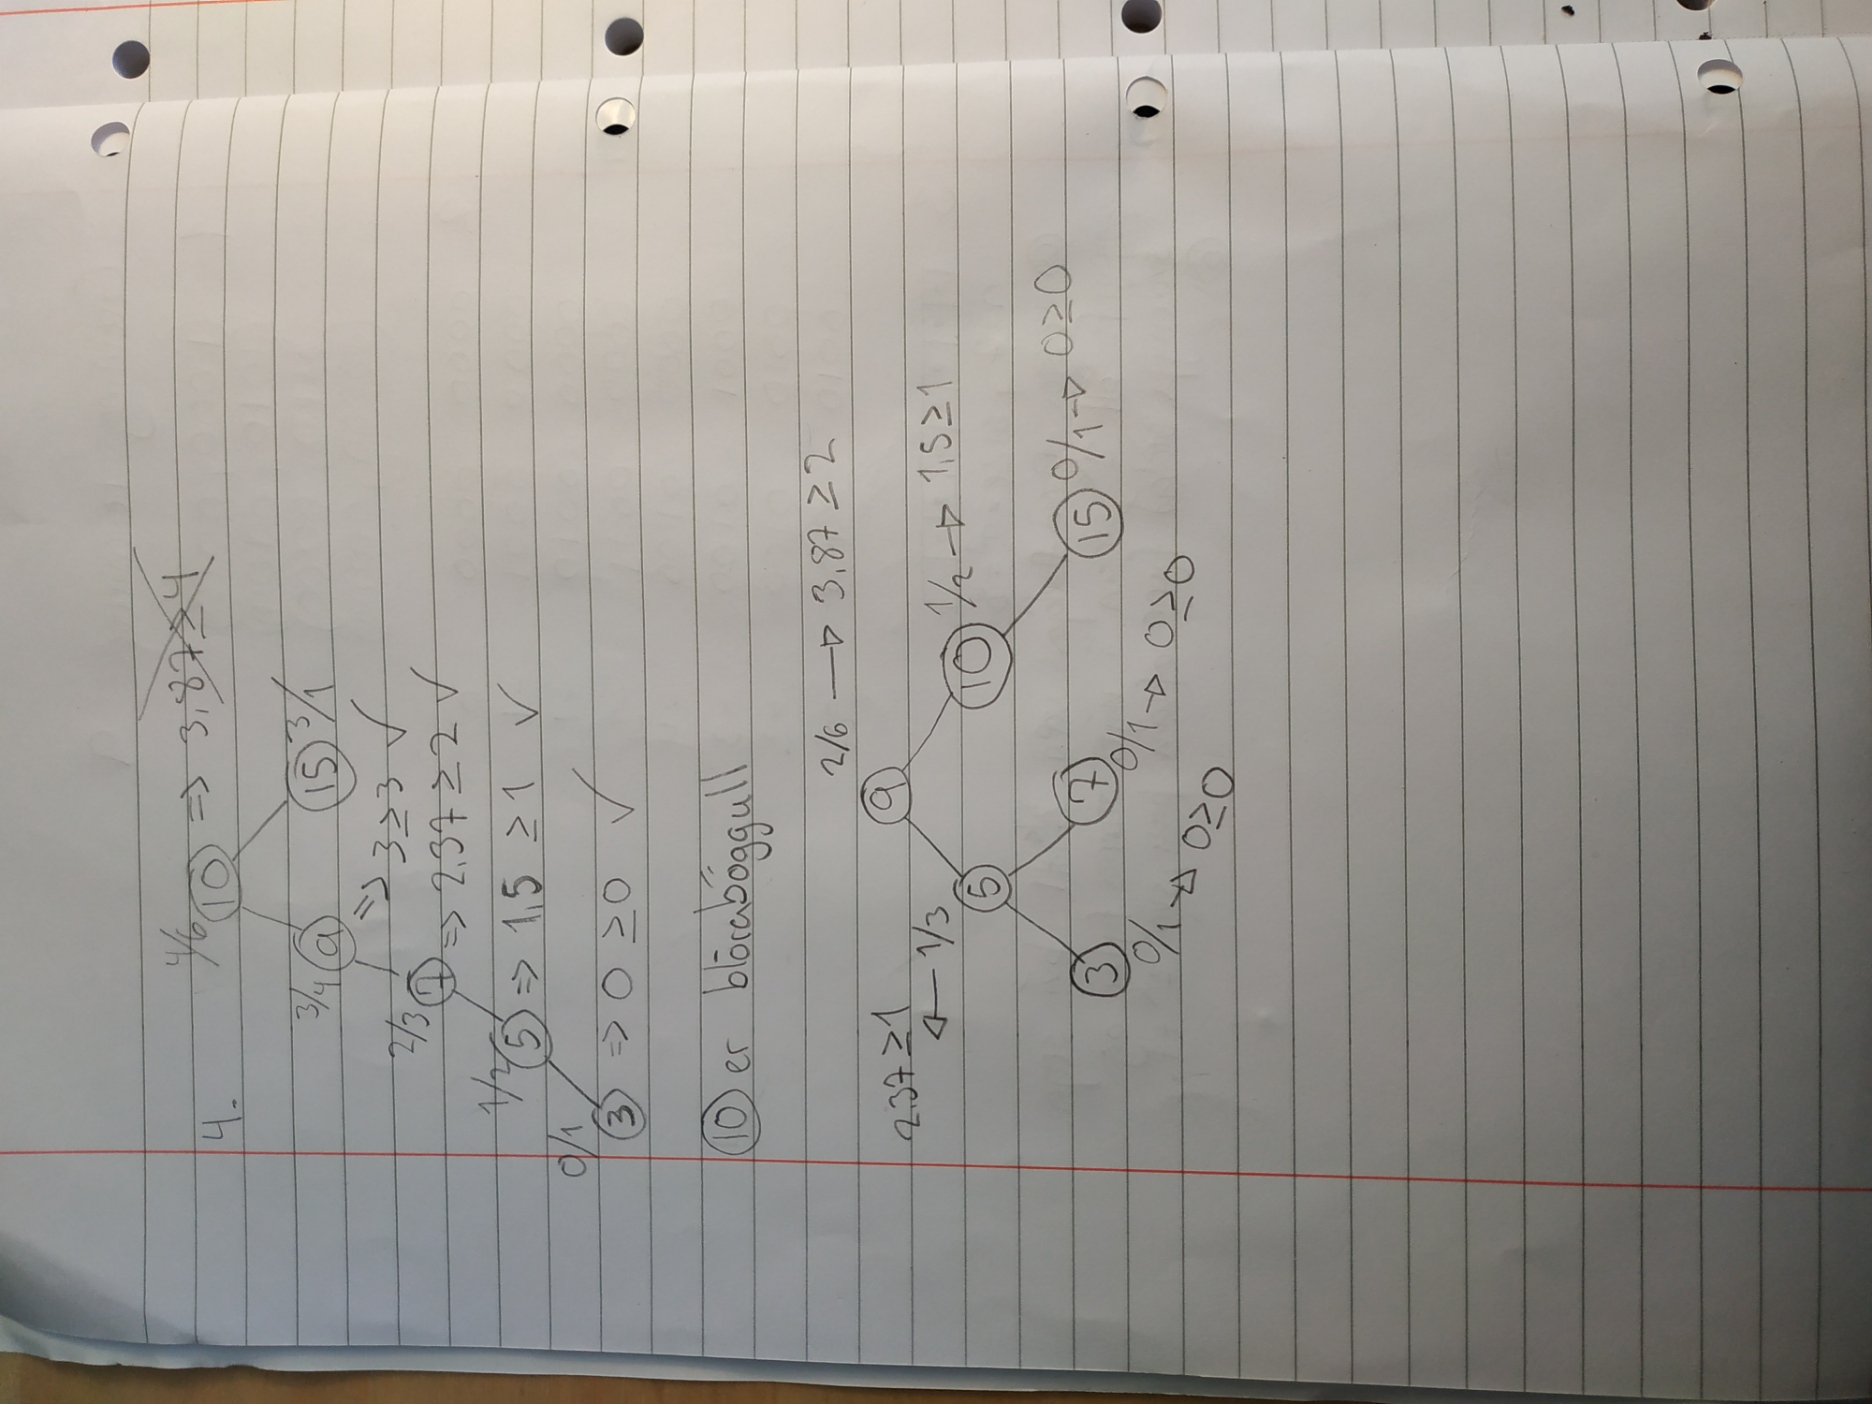 4/6
4. 10 => 3,87≥4
3/4 9 15 3/1
=> 3≥3 ✓
2/3 7 => 2,37 ≥ 2 ✓
1/2 5 => 1,5 ≥ 1 ✓
0/1
3 => 0 ≥ 0 ✓
10 er blórabőggull
2/6 → 3,87 ≥ 2
9
2,37 ≥ 1
← 1/3
1/2 → 1,5 ≥ 1
5 10
3 7 15 0/1 → 0≥0
0/1 → 0≥0
0/1 → 0≥0